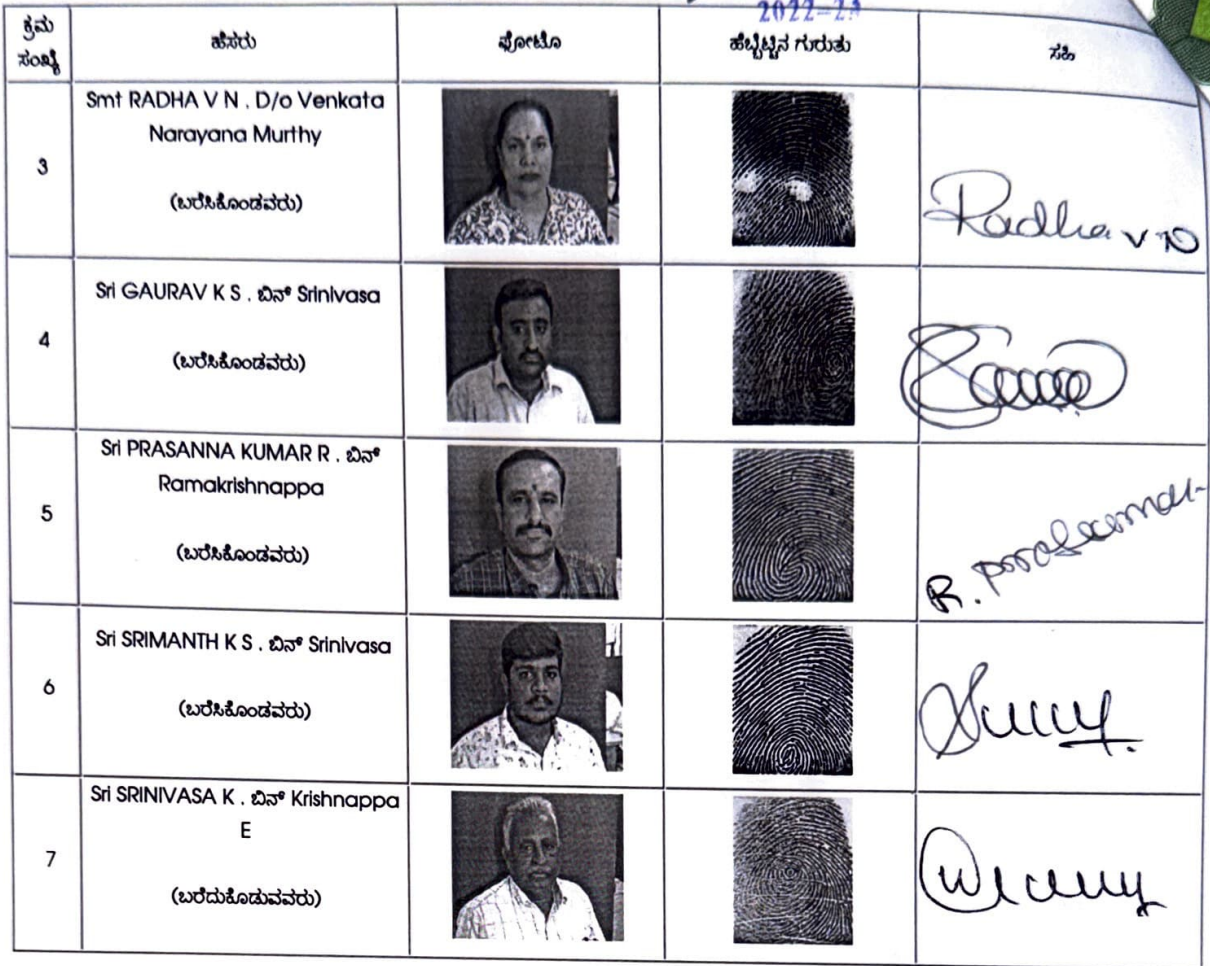 2022-23
ಕ್ರಮ ಸಂಖ್ಯೆ ಹೆಸರು ಫೋಟೊ ಹೆಬ್ಬೆಟ್ಟಿನ ಗುರುತು ಸಹಿ
3
Smt RADHA V N . D/o Venkata
Narayana Murthy
(ಬರೆಸಿಕೊಂಡವರು)
Radha V N
4
Sri GAURAV K S . ಬಿನ್ Srinivasa
(ಬರೆಸಿಕೊಂಡವರು)
5
Sri PRASANNA KUMAR R . ಬಿನ್
Ramakrishnappa
(ಬರೆಸಿಕೊಂಡವರು)
6
Sri SRIMANTH K S . ಬಿನ್ Srinivasa
(ಬರೆಸಿಕೊಂಡವರು)
7
Sri SRINIVASA K . ಬಿನ್ Krishnappa
E
(ಬರೆದುಕೊಡುವವರು)